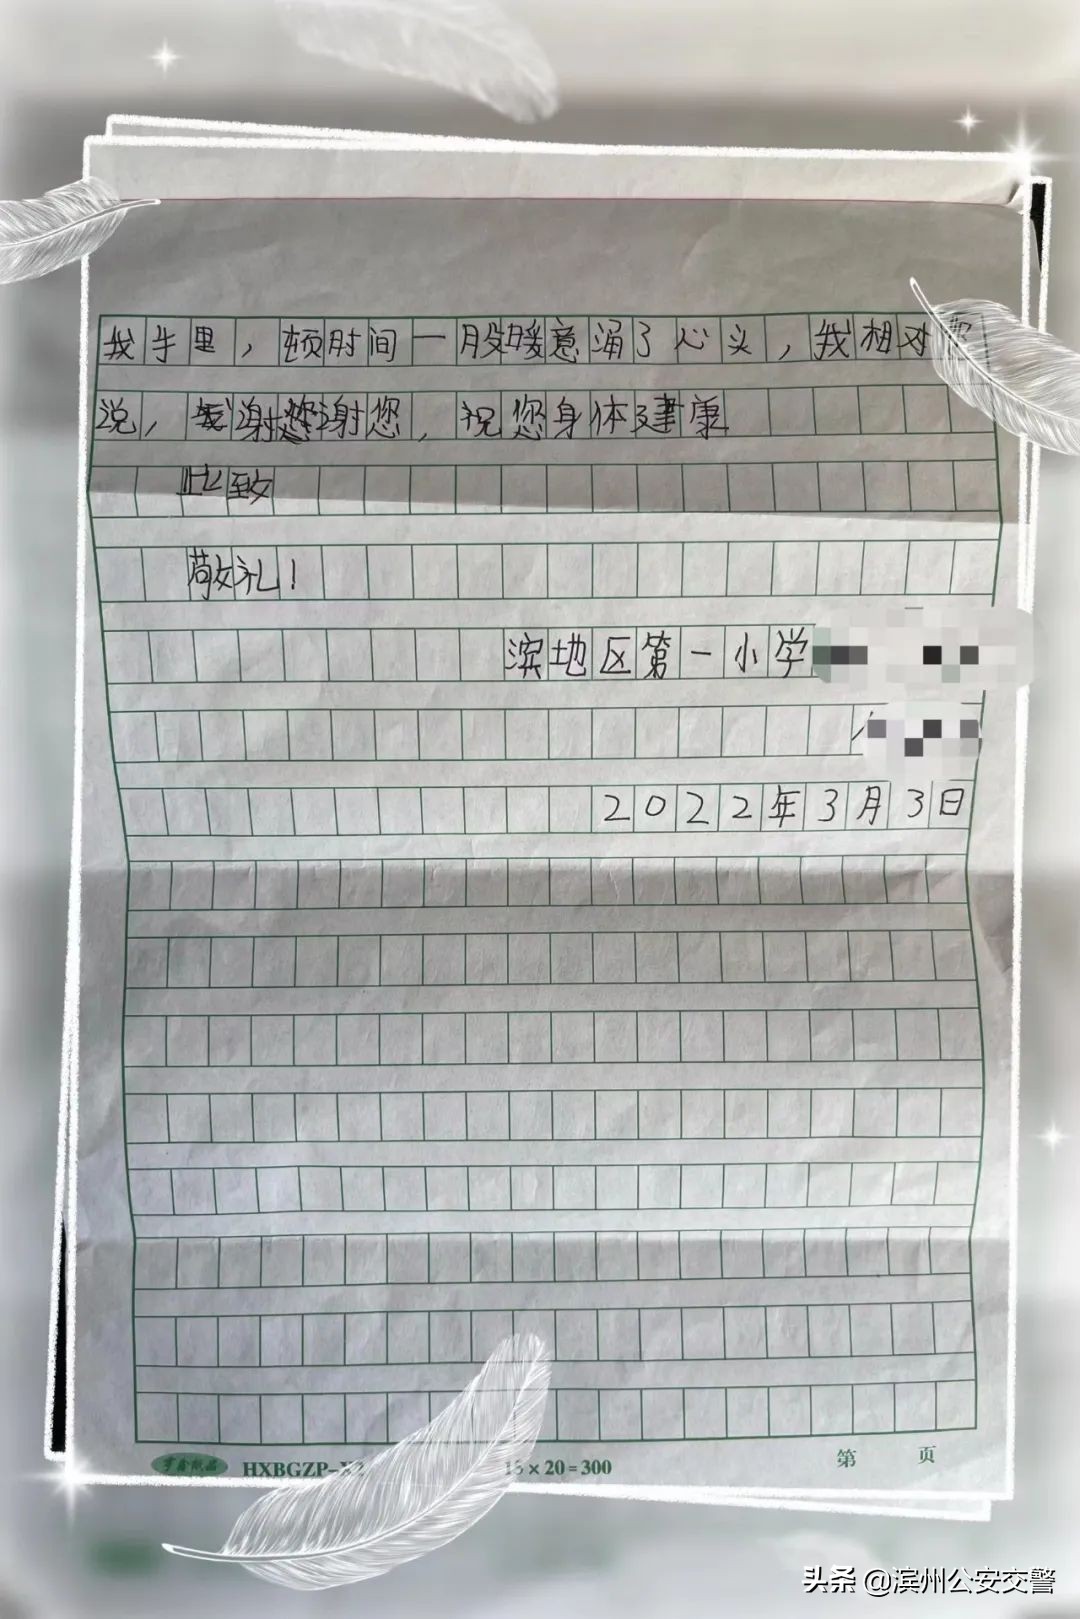 我手里，顿时间一股暖意涌了心头，我相对您
说，谢谢您，祝您身体建康
此致
敬礼！
滨地区第一小学
2022年3月3日
HXBGZP-
15×20=300
第 页
头条 @滨州公安交警